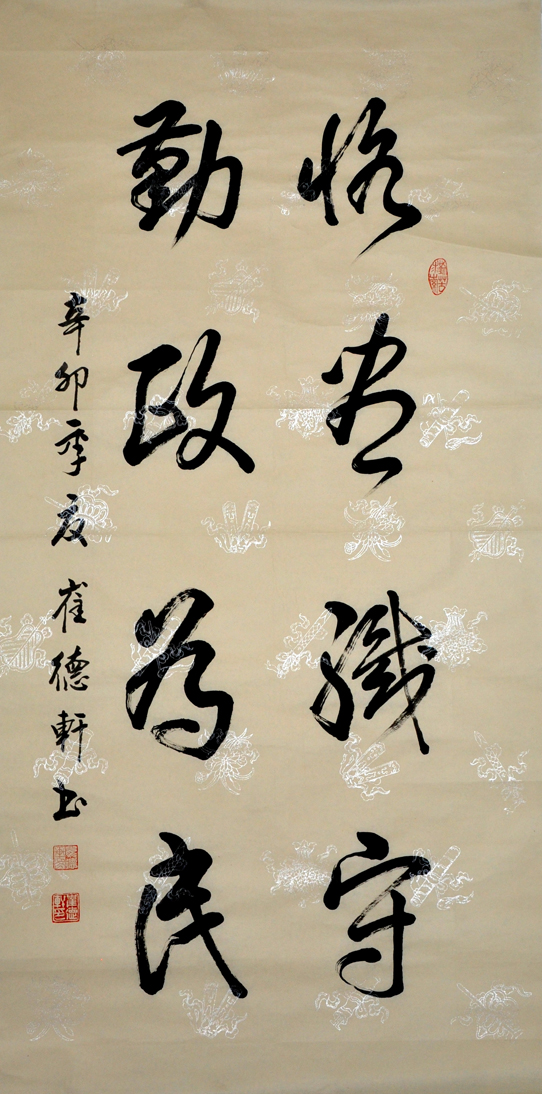 恪盡職守
勤政為民
辛卯季夏崔德軒书